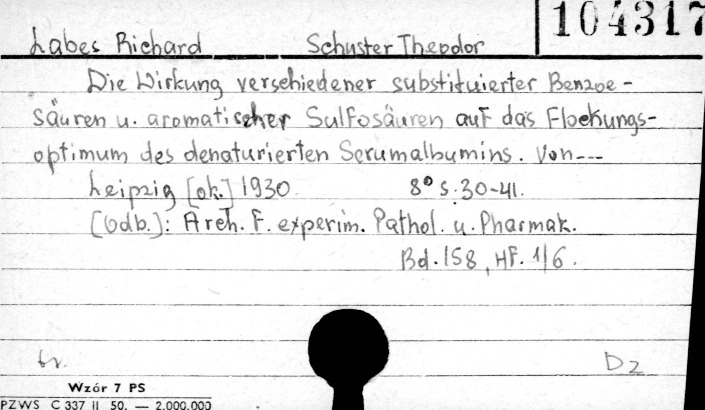 104317
Labes Richard Schuster Theodor
Die Wirkung verschiedener substituierter Benzoe-
säuren u. aromatischer Sulfosäuren auf das Flockungs-
optimum des denaturierten Serumalbumins. Von---
Leipzig [ok.] 1930. 8° S. 30-41.
[Odb.]: Arch. f. experim. Pathol. u. Pharmak.
Bd. 158, Hf. 1/6.
Dz
Wzór 7 PS
PZWS C 337 II 50. — 2.000.000